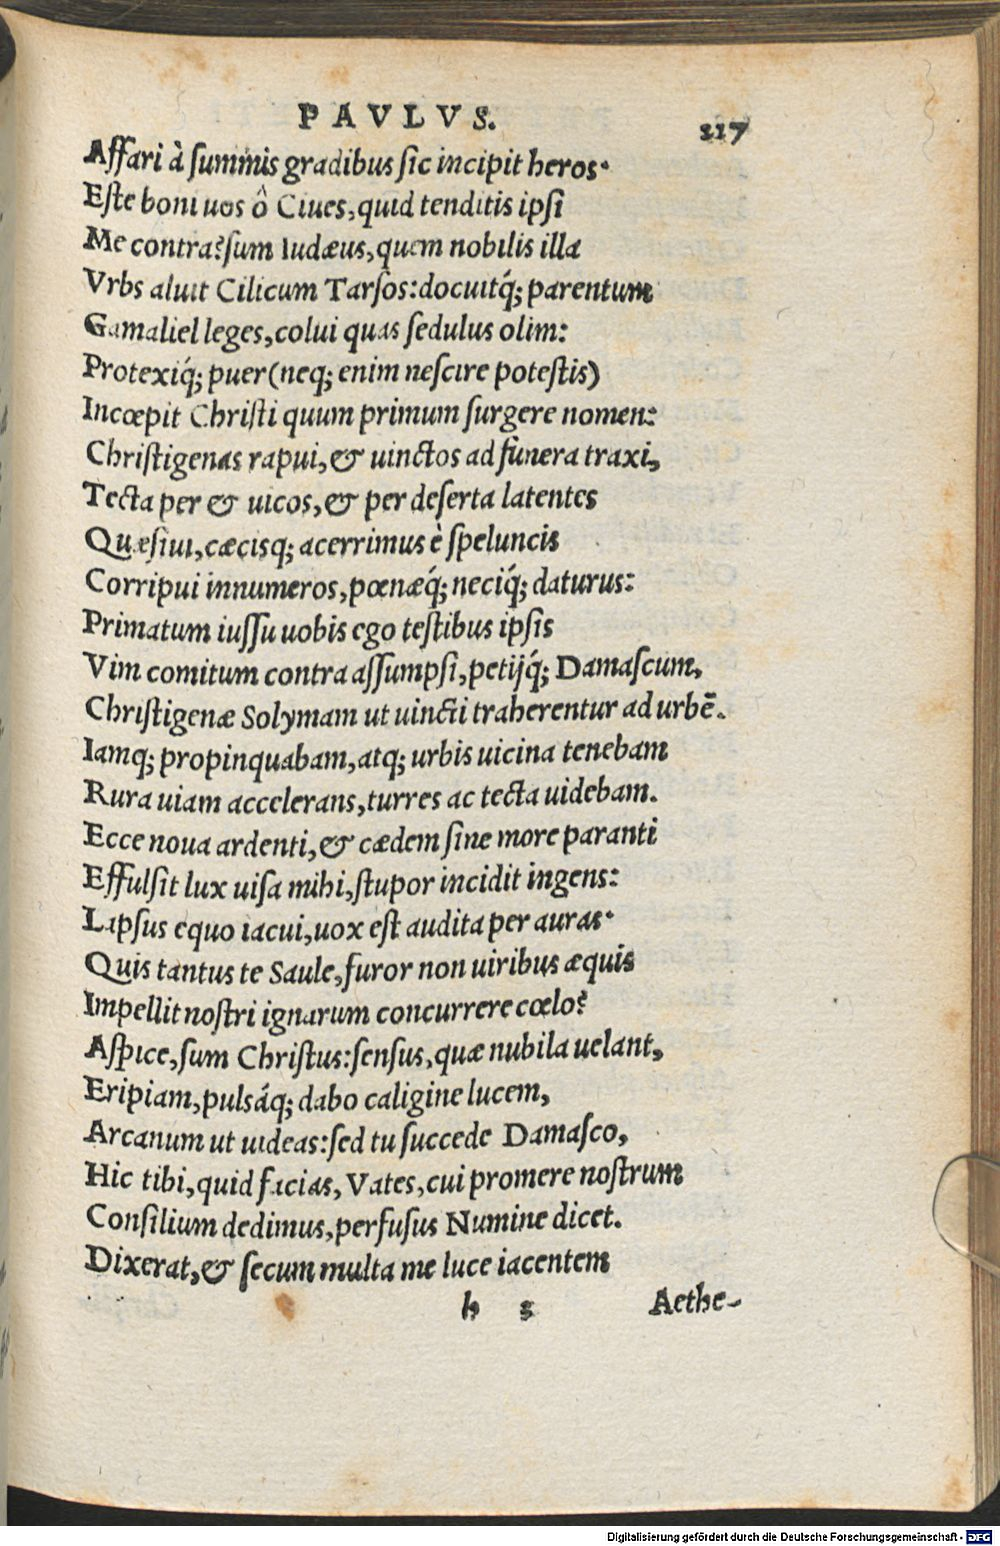 PAVLVS. 117
Affari à summis gradibus sic incipit heros.
Este boni uos ô Ciues, quid tenditis ipsi
Me contra? sum Iudæus, quem nobilis illa
Vrbs aluit Cilicum Tarsos: docuitq́; parentum
Gamaliel leges, colui quas sedulus olim:
Protexiq́; puer (neq; enim nescire potestis)
Incœpit Christi quum primum surgere nomen:
Christigenas rapui, & uinctos ad funera traxi,
Tecta per & uicos, & per deserta latentes
Quæsiui, cæcisq; acerrimus è speluncis
Corripui innumeros, pœnæq́; neciq́; daturus:
Primatum iussu uobis ego testibus ipsis
Vim comitum contra assumpsi, petijq́; Damascum,
Christigenæ Solymam ut uincti traherentur ad urbē.
Iamq; propinquabam, atq; urbis uicina tenebam
Rura uiam accelerans, turres ac tecta uidebam.
Ecce noua ardenti, & cædem sine more paranti
Effulsit lux uisa mihi, stupor incidit ingens:
Lapsus equo iacui, uox est audita per auras.
Quis tantus te Saule, furor non uiribus æquis
Impellit nostri ignarum concurrere cœlo?
Aspice, sum Christus: sensus, quæ nubila uelant,
Eripiam, pulsáq; dabo caligine lucem,
Arcanum ut uideas: sed tu succede Damasco,
Hic tibi, quid facias, Vates, cui promere nostrum
Consilium dedimus, perfusus Numine dicet.
Dixerat, & secum multa me luce iacentem
h 5 Aethe-
Digitalisierung gefördert durch die Deutsche Forschungsgemeinschaft - DFG